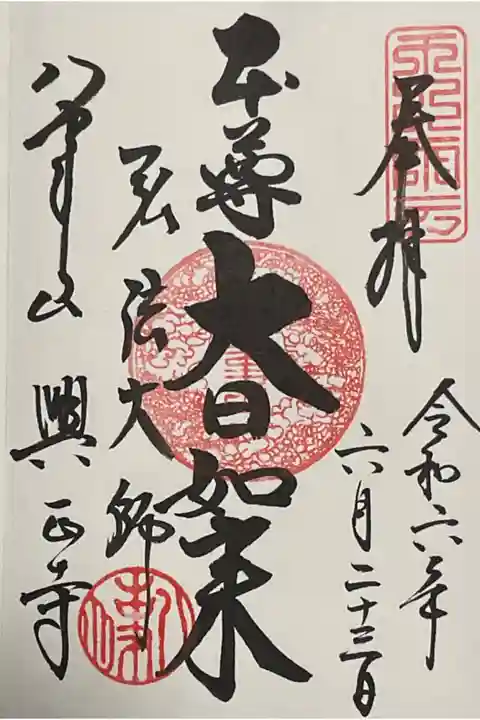 奉拝
令和六年
六月二十三日
本尊
大日如来
弘法大師
八事山 興正寺